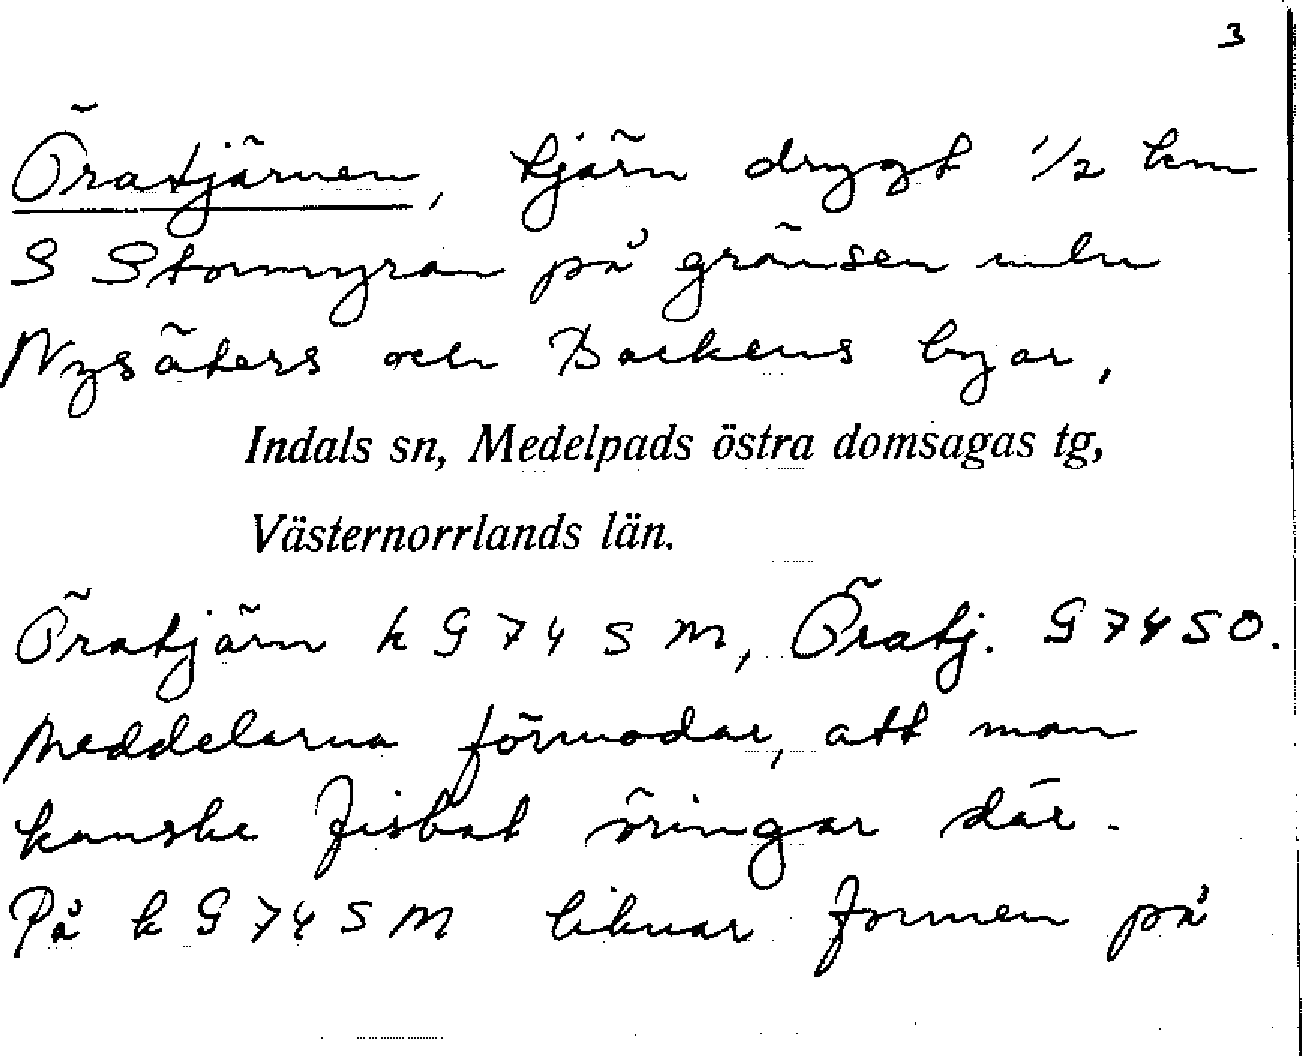 3
Öratjärnen, tjärn drygt 1/2 km
S Stormyran på gränsen mln
Nysäters och Backens byar,
Indals sn, Medelpads östra domsagas tg,
Västernorrlands län.
Öratjärn k G 74 S M, Öratj. G 74 SO.
Meddelarna förmodar, att man
kanske fiskat öringar där.
På k G 74 S M liknar formen på